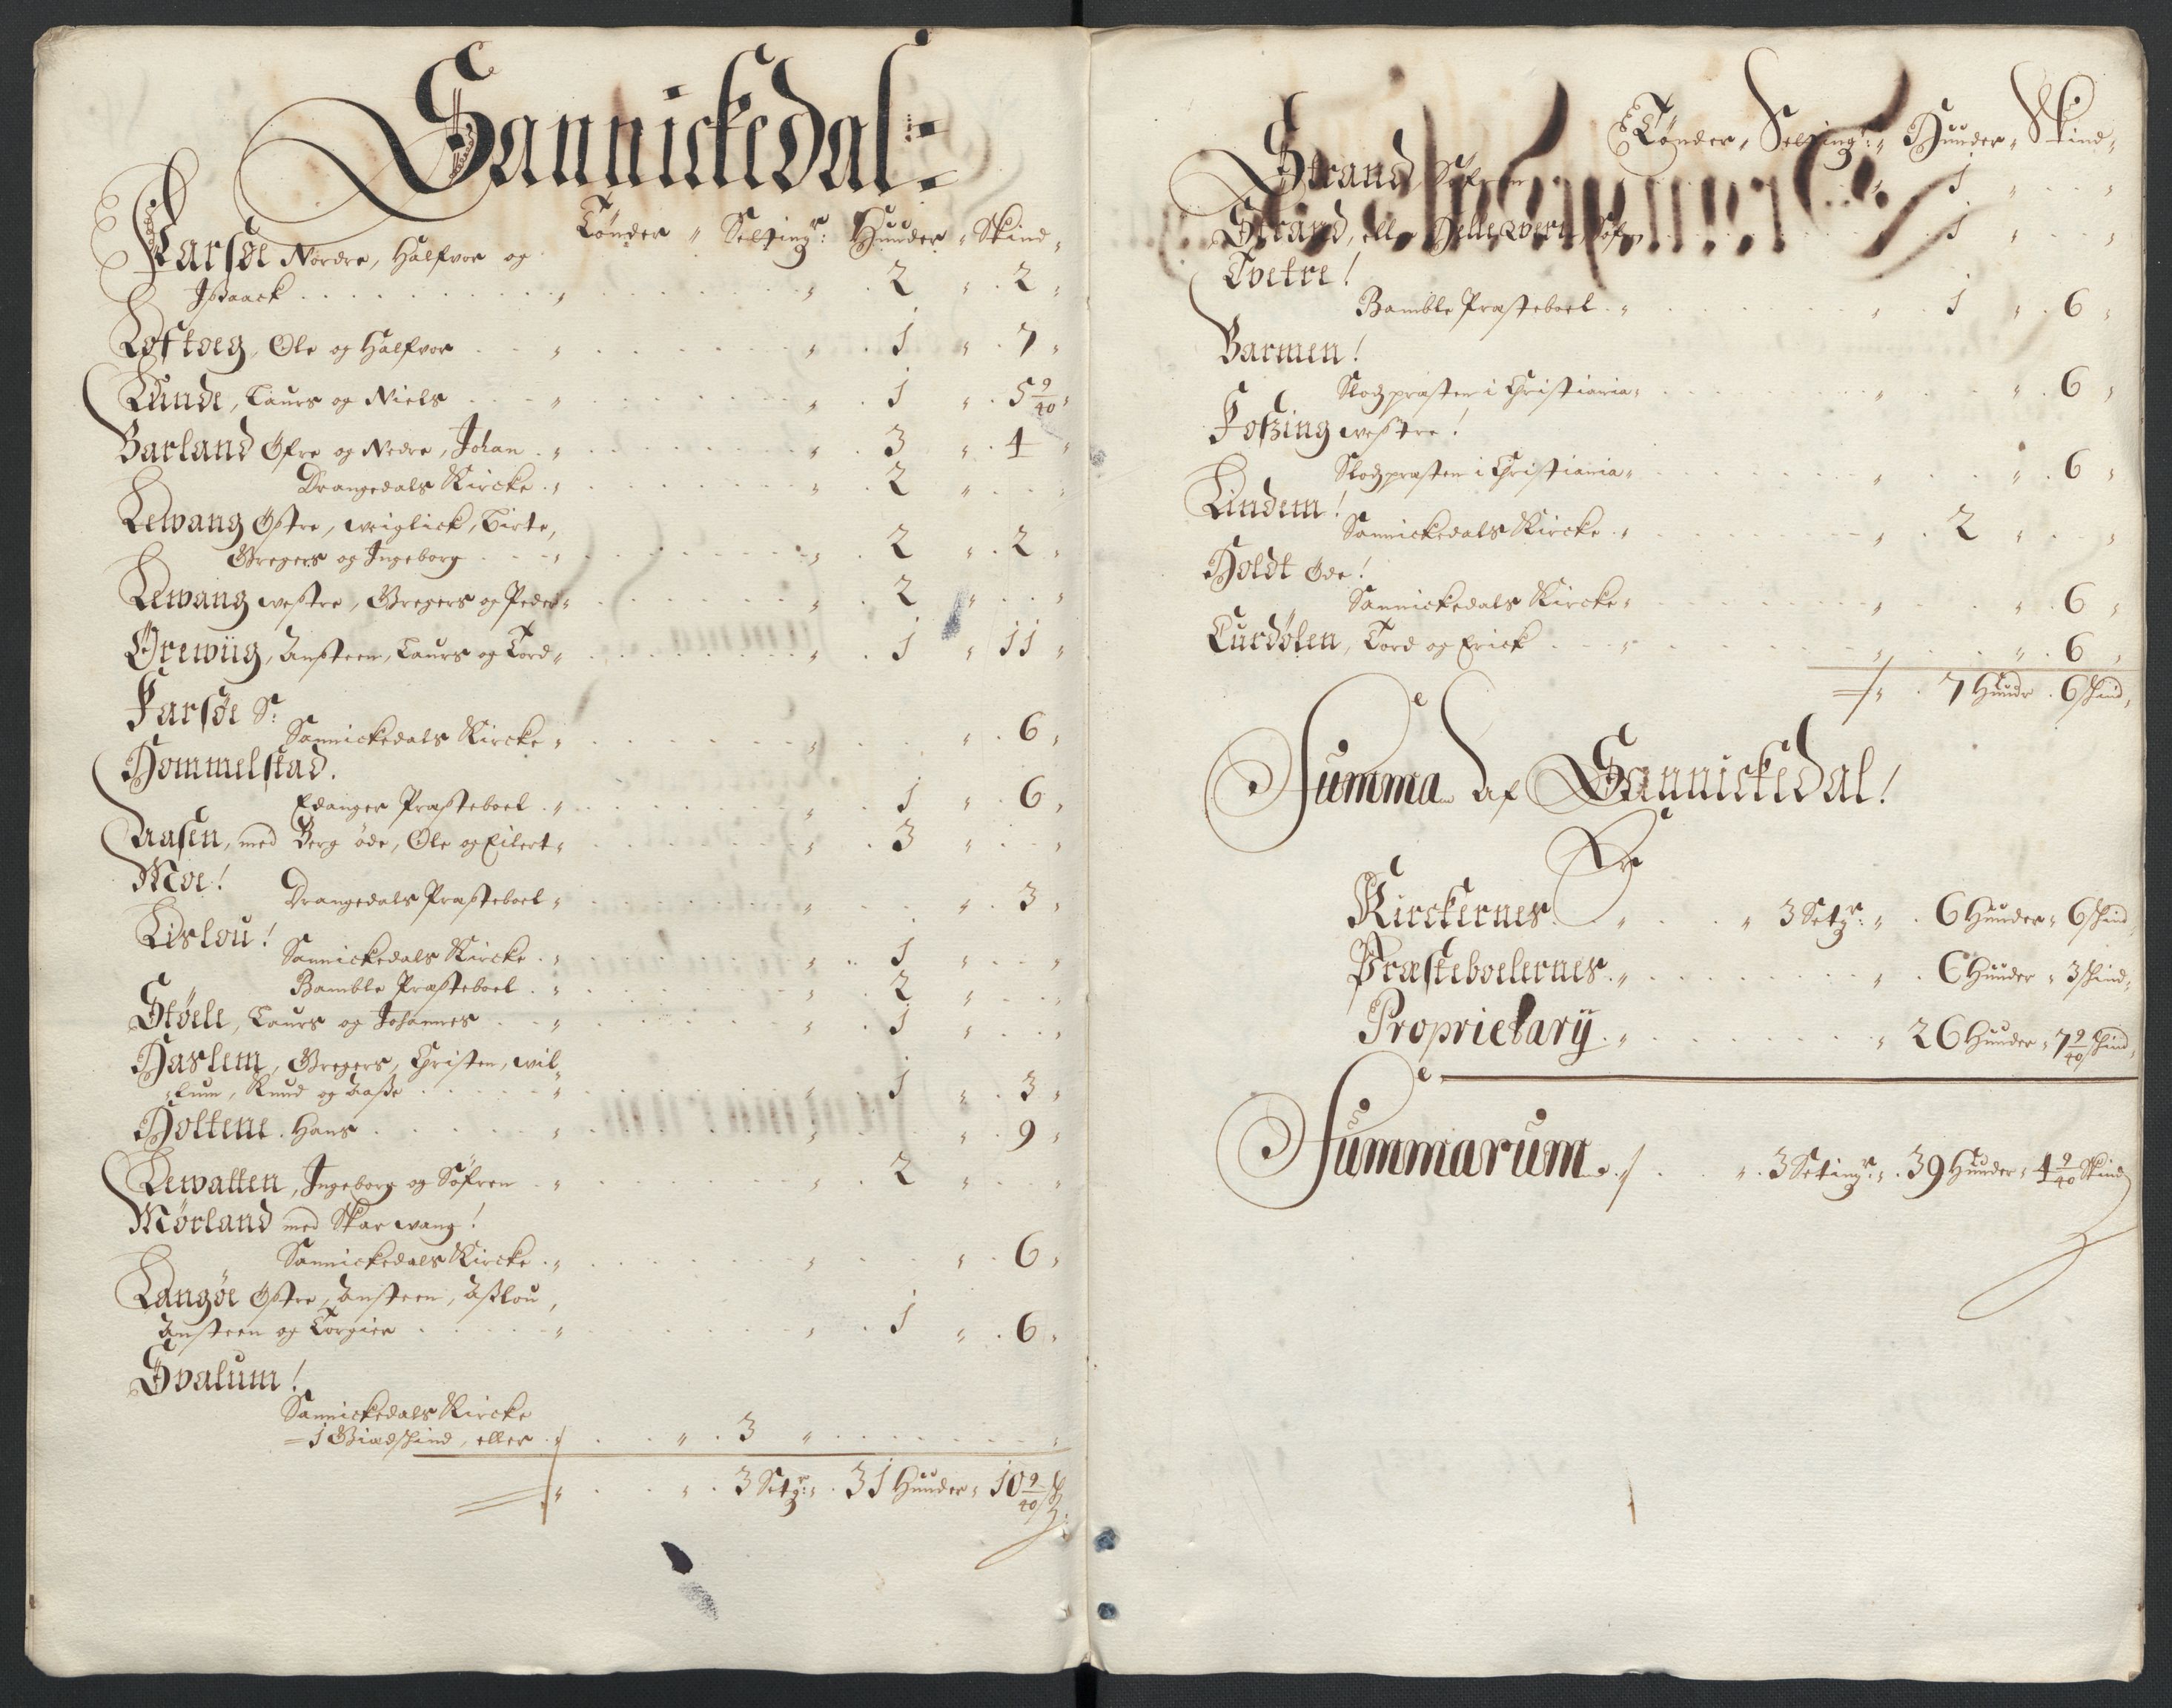 Sannickedal:
Tønder " Setting: Hunder " Skind "
Farsøe Nordre, Halfvor og
Jssaack . . . " . . . " . 2 " . 2 "
Loftøeg, Ole og Halfvor . . " . . . " . 1 " . 7 "
Lunde, Laurs og Niels . . " . . . " . 1 " . 5 9/40 "
Barland Øfre og Nedre, Johan . " . . . " . 3 " . 4 "
Drangedals Kircke . " . . . " . 2 " . . "
Lewang Østre, wiglick, Birte,
Gregers og Jngeborg . . " . . . " . 2 " . 2 "
Lewang westre, Gregers og Peder " . . . " . 2 " . . "
Ørewiig, Ansteen, Laurs og Tord " . . . " . 1 " 11 "
Farsøe Sr:
Sannickedals Kircke " . . . " . . " . 6 "
Hommelstad.
Edanger Præsteboel . " . . . " . 1 " . 6 "
Aasen, med Berg øde, Ole og Eilert " . . . " . 3 " . . "
Moe!
Drangedals Præsteboel " . . . " . . " . 3 "
Lislou!
Sannickedals Kircke . " . . . " . 1 " . . "
Bamble Præsteboel . " . . . " . 2 " . . "
Støele, Laurs og Johannes . . " . . . " . 1 " . . "
Haslem, Gregers, Christen, wil-
-lum, Knud og Aasse . . . " . . . " . 1 " . 3 "
Holtene. Hans . . . " . . . " . . " . 9 "
Lewatten, Jngeborg og Söfren . " . . . " . 2 " . . "
Mörland med Skarwang!
Sannickedals Kircke . " . . . " . . " . 6 "
Langøe Østre, Ansteen, Asslou,
Ansteen og Torgier . . . " . . . " . 1 " . 6 "
Svalum!
Sannickedals Kircke
= 1 Giedskind, eller . " . . " . 3 " . . . "
" . . " . 3 Setgr: " . 31 Hunder " 10 9/40 sk:
Tønder, Setting: " Hunder " Skind "
Strand, Söfren . . . " . 1 " . . "
Strand, eller Hellekvern, Söfr . . . 1 " . . "
Tvetre!
Bamble Præsteboel . " . . . " . 1 " . 6 "
Barmen!
Slodzpræsten i Christiania " . . . " . . " . 6 "
Fossing westre!
Slodzpræsten i Christiania " . . . " . . " . 6 "
Lindem!
Sannickedals Kircke . " . . . " . 2 " . . "
Holdt Øde!
Sannickedals Kircke " . . . " . . " . 6 "
Turdölen, Tord og Erick . . " . . . " . . " . 6 "
" . 7 Hundr . 6 skind "
Summa Af Sannickedal!
Kirckernes . " . . " 3 Setgr: " . 6 Hunder " 6 skind "
Præsteboelernes . " . . . " . 6 Hunder " 3 skind "
Proprietarÿ . " . . . " 26 Hunder " 7 9/40 skind "
Summarum . . . " . 3 Setingr: " . 39 Hunder " 4 9/40 Skind